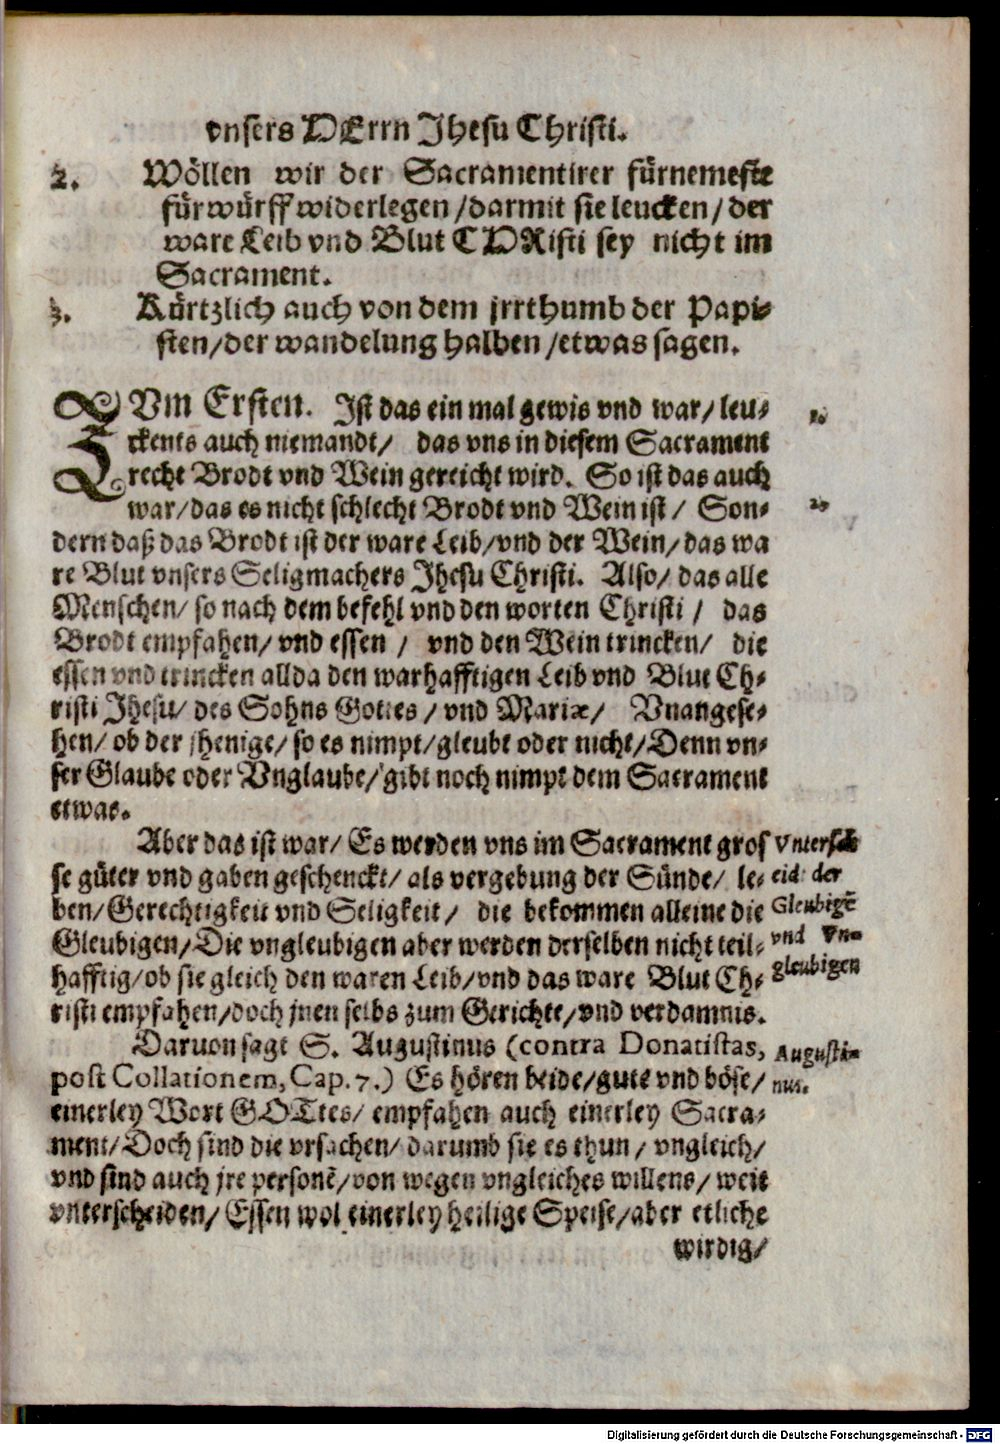 vnsers HErrn Jhesu Christi.
2. Wöllen wir der Sacramentirer fürnemeste
fürwürff widerlegen/darmit sie leucken/der
ware Leib vnd Blut CHRisti sey nicht im
Sacrament.
3. Kürtzlich auch von dem jrrthumb der Papi-
sten/der wandelung halben/etwas sagen.
ZUm Ersten. Ist das ein mal gewis vnd war/leu-
ckents auch niemandt/ das vns in diesem Sacrament
recht Brodt vnd Wein gereicht wird. So ist das auch
war/das es nicht schlecht Brodt vnd Wein ist/ Son-
dern daß das Brodt ist der ware Leib/vnd der Wein/das wa
re Blut vnsers Seligmachers Jhesu Christi. Also/ das alle
Menschen/ so nach dem befehl vnd den worten Christi/ das
Brodt empfahen/ vnd essen/ vnd den Wein trincken/ die
essen vnd trincken allda den warhafftigen Leib vnd Blut Ch-
risti Jhesu/ des Sohns Gottes/ vnd Mariæ/ Vnangese-
hen/ ob der jhenige/ so es nimpt/gleubt oder nicht/Denn vn-
ser Glaube oder Vnglaube/gibt noch nimpt dem Sacrament
etwas.
Aber das ist war/ Es werden vns im Sacrament gros
se güter vnd gaben geschenckt/ als vergebung der Sünde/ le-
ben/Gerechtigkeit vnd Seligkeit/ die bekommen alleine die
Gleubigen/Die vngleubigen aber werden derselben nicht teil-
hafftig/ob sie gleich den waren Leib/vnd das ware Blut Ch-
risti empfahen/doch jnen selbs zum Gerichte/vnd verdamnis.
Daruon sagt S. Augustinus (contra Donatistas,
post Collationem, Cap. 7.) Es hören beide/gute vnd böse/
einerley Wort GOTtes/ empfahen auch einerley Sacra-
ment/Doch sind die vrsachen/darumb sie es thun/ vngleich/
vnd sind auch jre personẽ/von wegen vngleiches willens/ weit
vnterscheiden/ Essen wol einerley heilige Speise/aber etliche
wirdig/
1.
2.
Vnterschi
eid der
Gleubigẽ
vnd Vn-
gleubigen
Augusti-
nus.
Digitalisierung gefördert durch die Deutsche Forschungsgemeinschaft - DFG